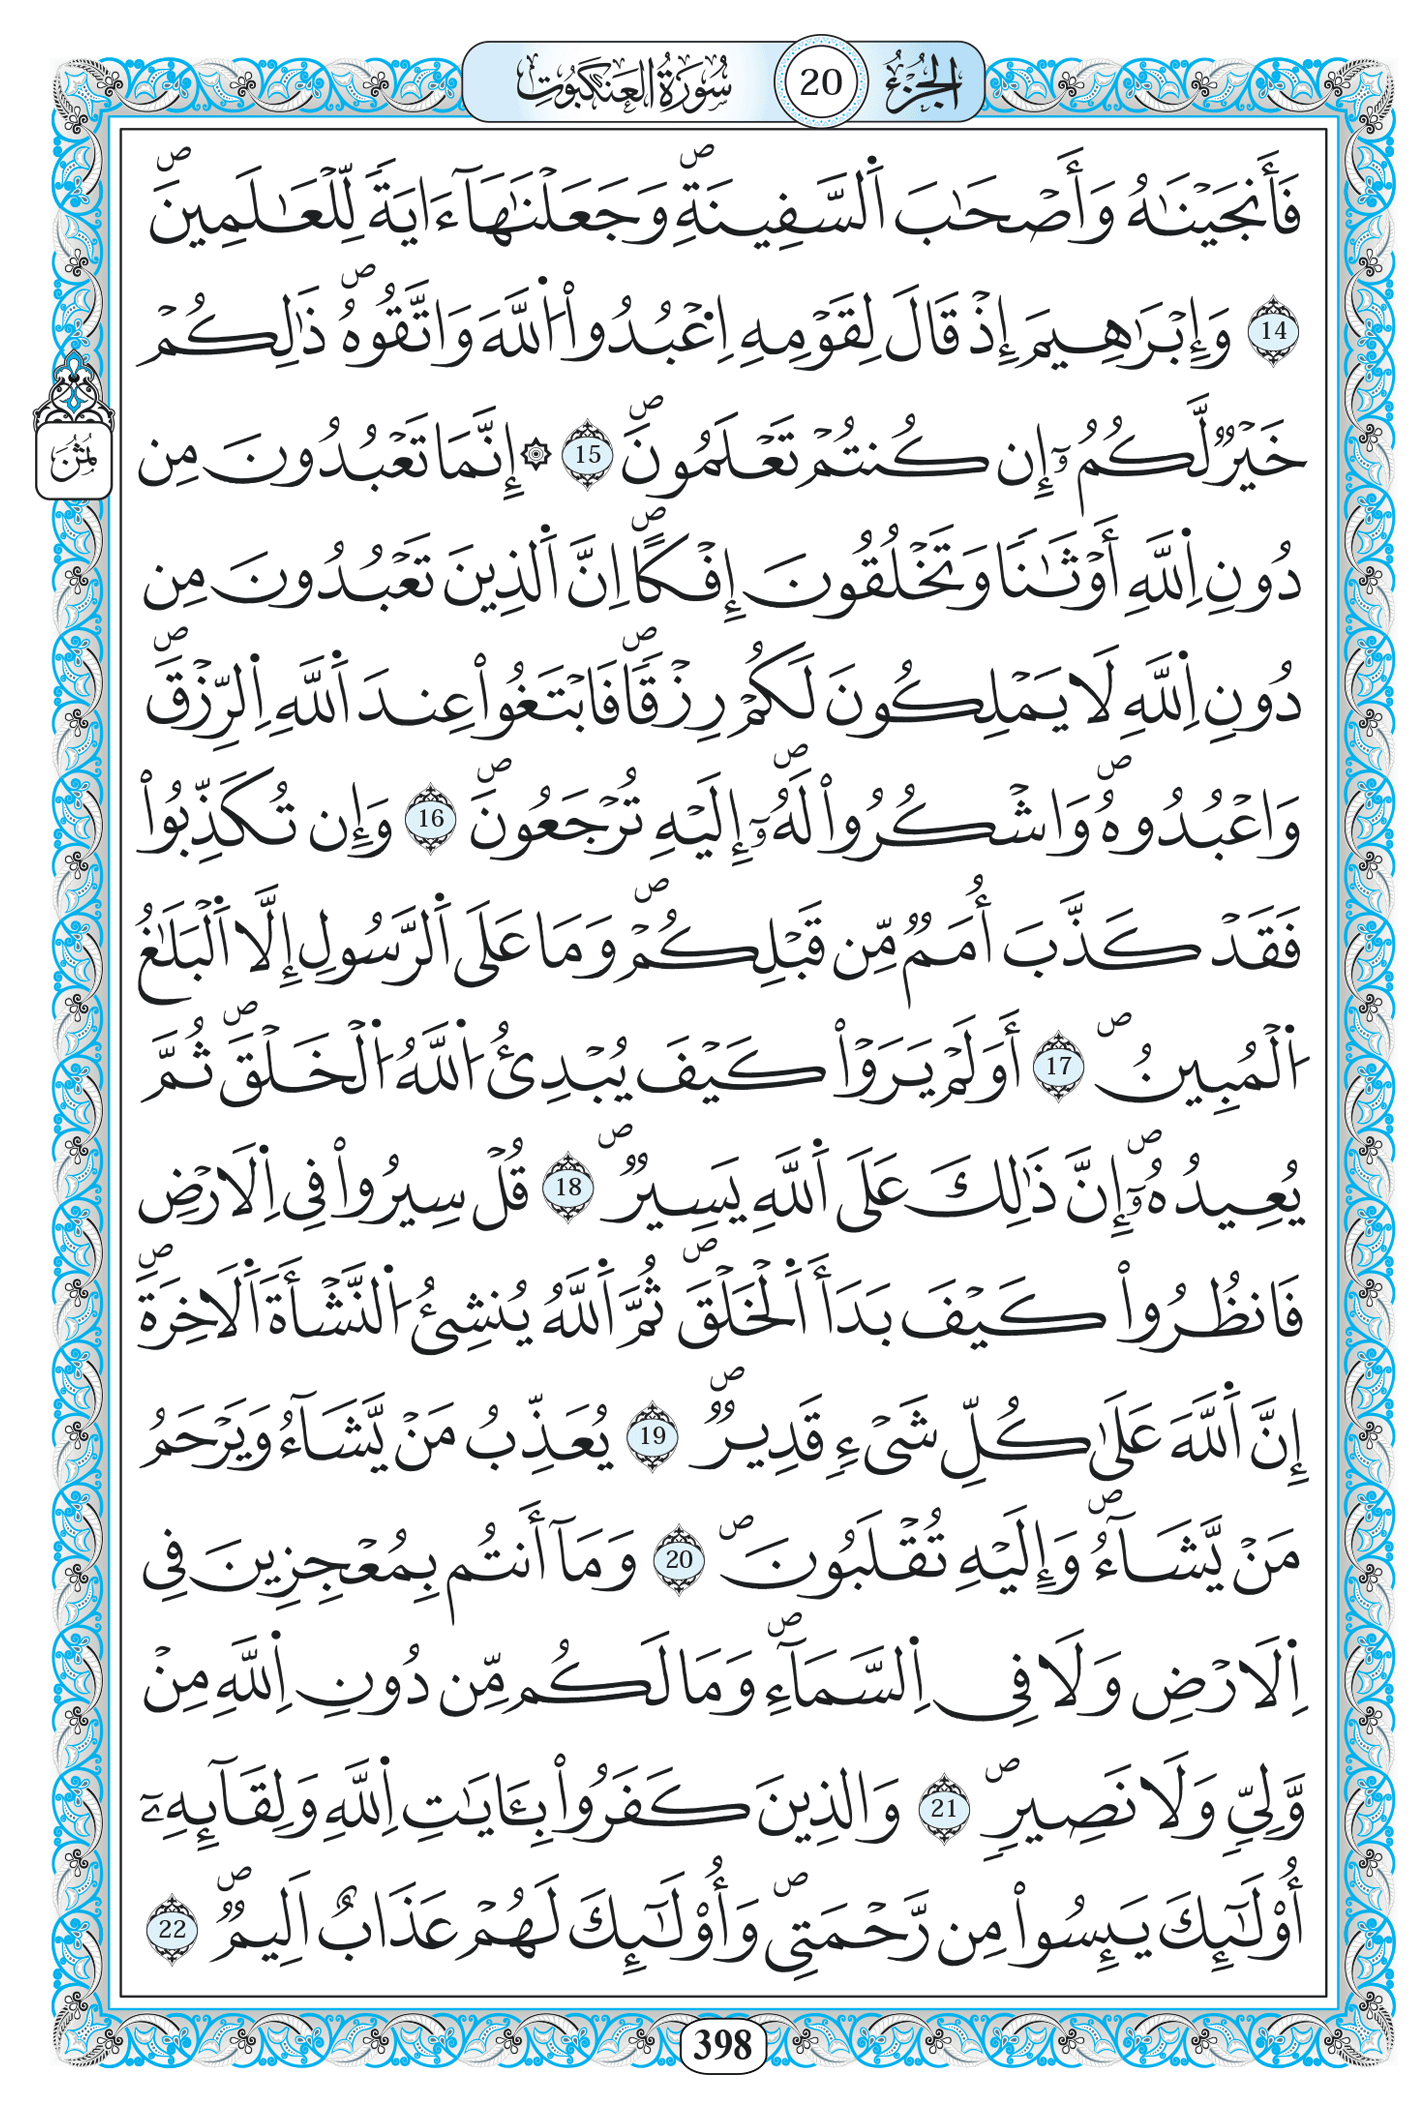 الجزء 20 سورة العنكبوت
فَأَنجَيْنَٰهُ وَأَصْحَٰبَ اَ۬لسَّفِينَةِۖ وَجَعَلْنَٰهَآ ءَايَةٗ لِّلْعَٰلَمِينَۖ
14 وَإِبْرَٰهِيمَ إِذْ قَالَ لِقَوْمِهِ اِ۟عْبُدُواْ اُ۬للَّهَ وَاتَّقُوهُۖ ذَٰلِكُمْ
خَيْرٞ لَّكُمُۥٓ إِن كُنتُمْ تَعْلَمُونَۖ 15 ۞ إِنَّمَا تَعْبُدُونَ مِن
دُونِ اِ۬للَّهِ أَوْثَٰنٗا وَتَخْلُقُونَ إِفْكاًۖ اِنَّ اَ۬لذِينَ تَعْبُدُونَ مِن
دُونِ اِ۬للَّهِ لَا يَمْلِكُونَ لَكُمْ رِزْقٗاۖ فَابْتَغُواْ عِندَ اَ۬للَّهِ اِ۬لرِّزْقَۖ
وَاعْبُدُوهُۖ وَاشْكُرُواْ لَهُۥٓۖ إِلَيْهِ تُرْجَعُونَۖ 16 وَإِن تُكَذِّبُواْ
فَقَدْ كَذَّبَ أُمَمٞ مِّن قَبْلِكُمْۖ وَمَا عَلَى اَ۬لرَّسُولِ إِلَّا اَ۬لْبَلَٰغُ
اُ۬لْمُبِينُۖ 17 أَوَلَمْ يَرَوْاْ كَيْفَ يُبْدِئُ اُ۬للَّهُ اُ۬لْخَلْقَۖ ثُمَّ
يُعِيدُهُۥٓۖ إِنَّ ذَٰلِكَ عَلَى اَ۬للَّهِ يَسِيرٞۖ 18 قُلْ سِيرُواْ فِي اِ۬لَارْضِ
فَانظُرُواْ كَيْفَ بَدَأَ اَ۬لْخَلْقَۖ ثُمَّ اَ۬للَّهُ يُنشِئُ اُ۬لنَّشْأَةَ اَ۬لَاخِرَةَۖ
إِنَّ اَ۬للَّهَ عَلَىٰ كُلِّ شَيْءٖ قَدِيرٞۖ 19 يُعَذِّبُ مَنْ يَّشَآءُ وَيَرْحَمُ
مَنْ يَّشَآءُۖ وَإِلَيْهِ تُقْلَبُونَۖ 20 وَمَآ أَنتُم بِمُعْجِزِينَ فِي
اِ۬لَارْضِ وَلَا فِي اِ۬لسَّمَآءِۖ وَمَا لَكُم مِّن دُونِ اِ۬للَّهِ مِنْ
وَّلِيّٖ وَلَا نَصِيرٖۖ 21 وَالذِينَ كَفَرُواْ بِـَٔايَٰتِ اِ۬للَّهِ وَلِقَآئِهِۦٓ
أُوْلَٰٓئِكَ يَئِسُواْ مِن رَّحْمَتِيۖ وَأُوْلَٰٓئِكَ لَهُمْ عَذَابٌ اَلِيمٞۖ 22
ثُمُن
398